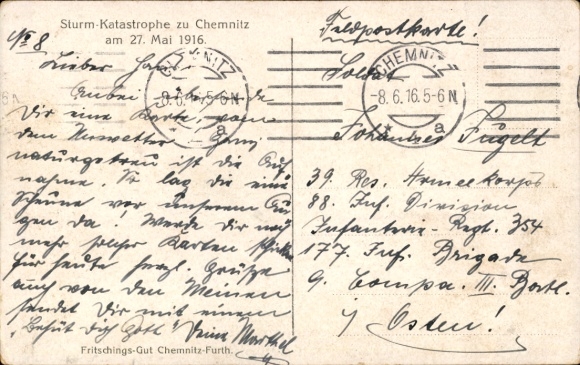 Sturm-Katastrophe zu Chemnitz
am 27. Mai 1916.
Lieber
Anbei übersende
Dir eine Karte, vom
dem Unwetter. Ganz
naturgetreu ist die Auf-
nahme. So lag die eine
Scheune vor unserem Au-
gen da! Werde Dir noch
mehr solcher Karten schicken
für heute herzl. Grüße
auch von den Meinen
sendet Dir mit einem
"Behüt Dich Gott" Deine
Fritschings-Gut Chemnitz-Furth.
CHEMNITZ
-8.6.16.5-6N
a
Feldpostkarte!
CHEMNITZ
-8.6.16.5-6N
a
Soldat
Johannes Fugelt
39. Res. Armeekorps
88. Inf. Division
Infanterie-Regt. 354
177. Inf. Brigade
9. Compa. III. Batl.
Osten!